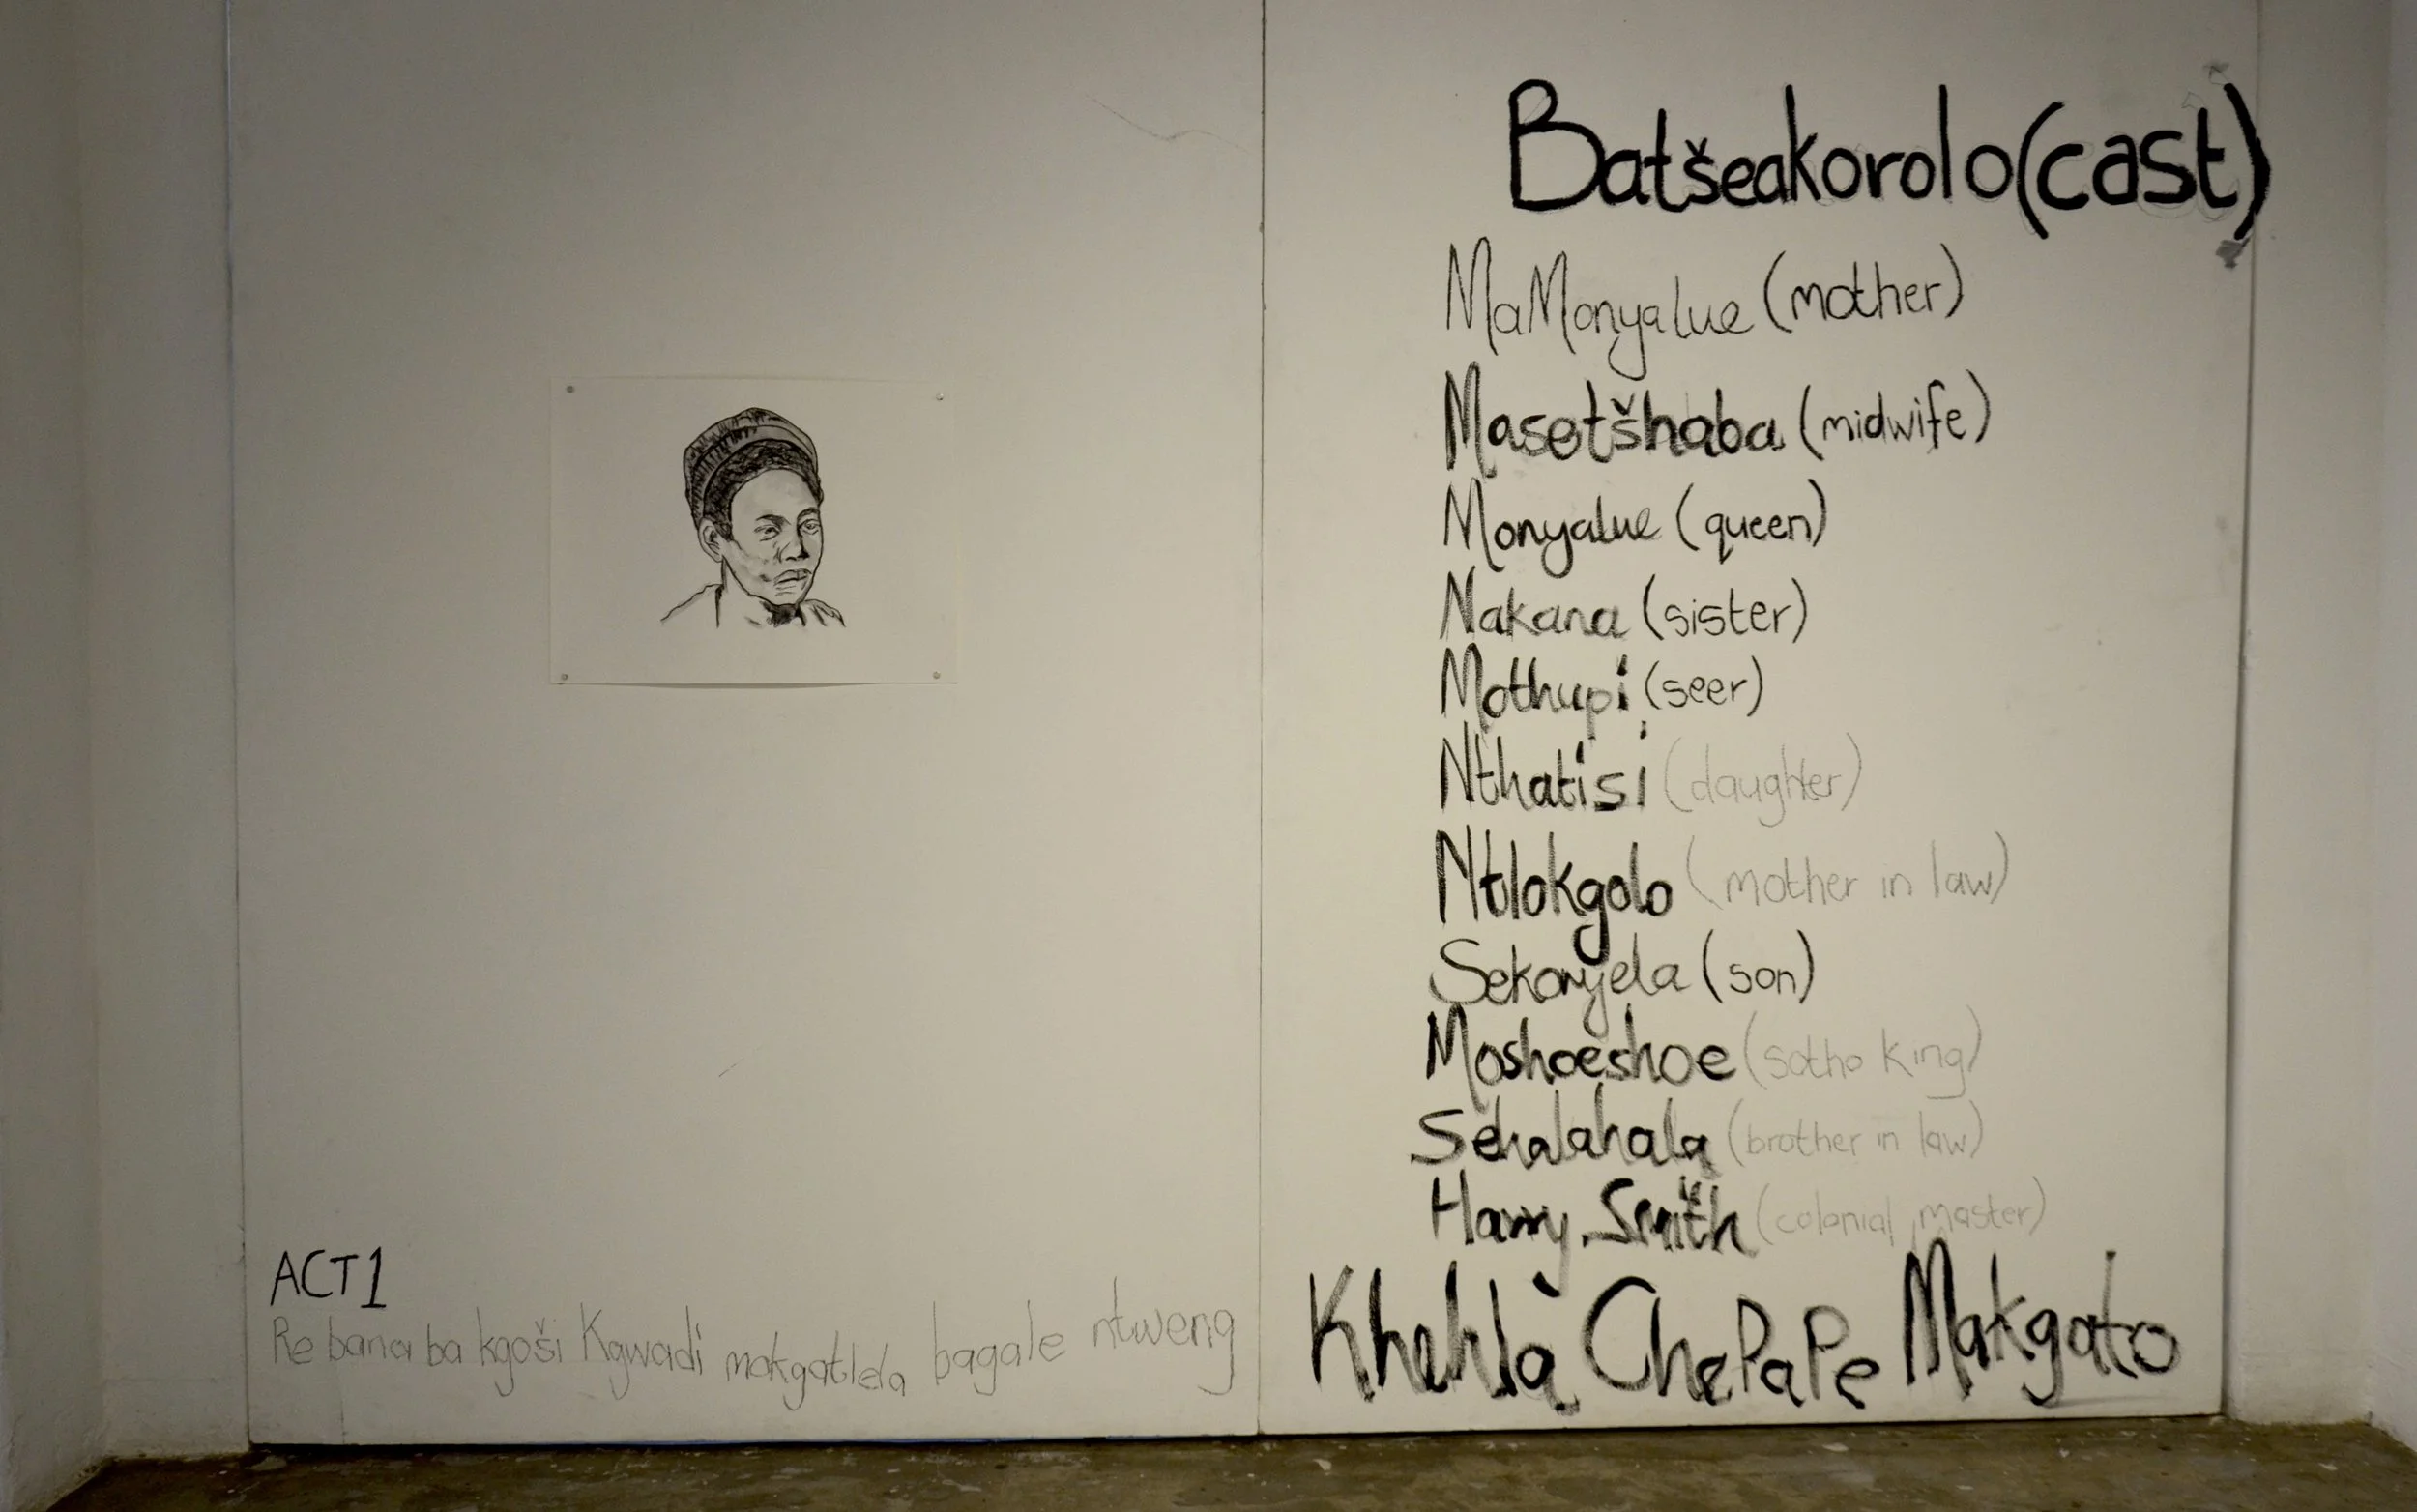 Batšeakorolo(cast)
MaMonyalue (mother)
Masetšhaba (midwife)
Monyalue (queen)
Nakana (sister)
Mothupi (seer)
Nthatisi (daughter)
Ntlokgolo (mother in law)
Sekonyela (son)
Moshoeshoe (sotho king)
Sehalahala (brother in law)
Harry Smith (colonial master)
Khehla ChePaPe Makgato
ACT1
Re bana ba kgoši Kgwadi makgatlela bagale ntweng